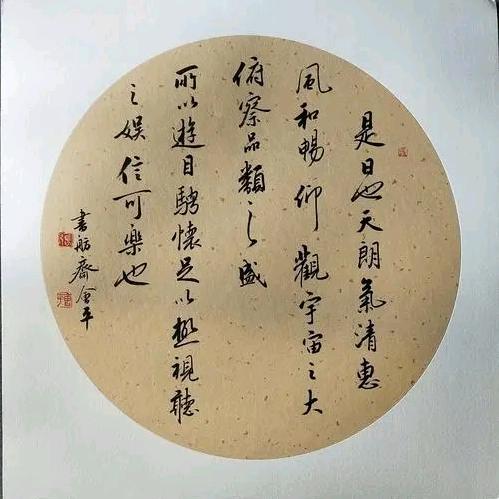 是日也天朗氣清惠
風和暢仰觀宇宙之大
俯察品類之盛
所以遊目騁懷足以極視聽
之娛信可樂也
書舫齋會平